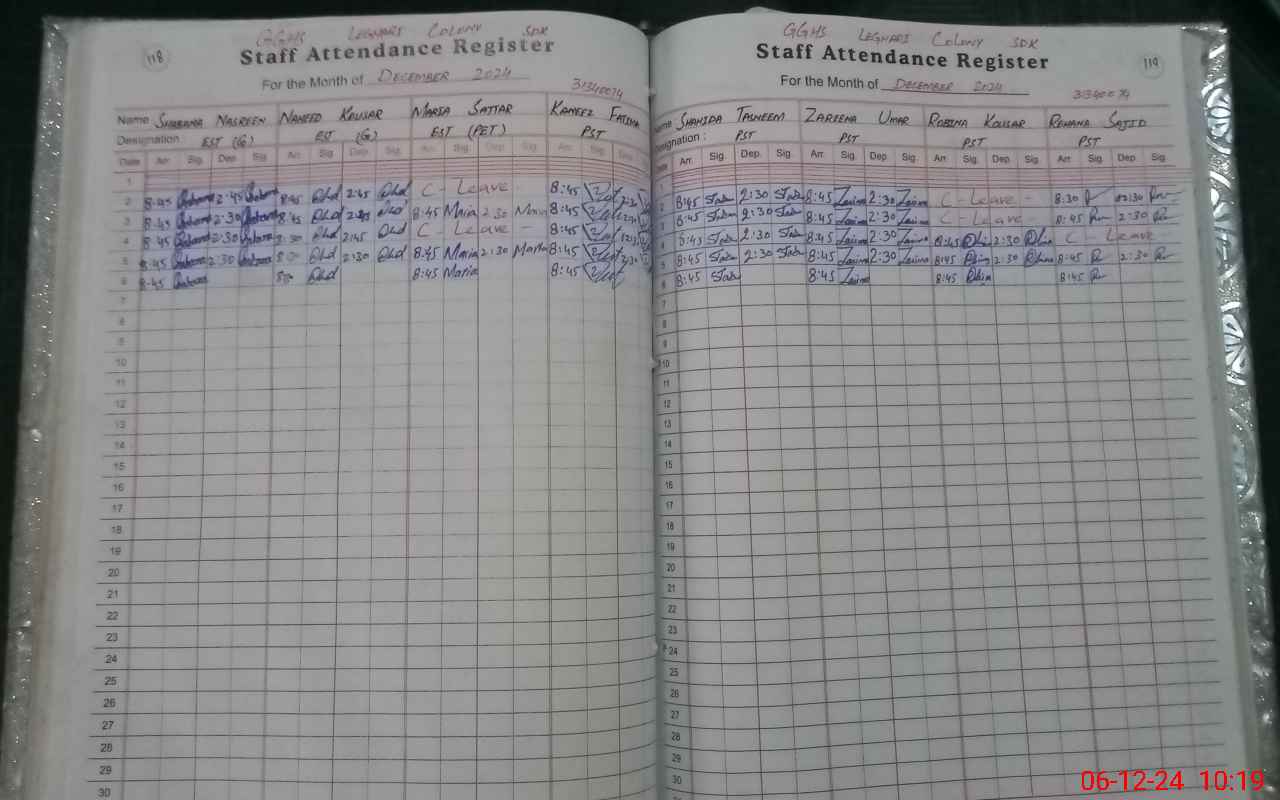 118
GGHS LEGHARI COLONY SDK
Staff Attendance Register
For the Month of DECEMBER 2024
31340074
Name SHABANA NASREEN NAHEED KOUSAR MARIA SATTAR KANEEZ FATIMA
Designation EST (G) EST (G) EST (PET) PST
Date Arr. Sig. Dep Sig. Arr. Sig Dep. Sig. Arr. Sig. Dep Sig. Arr. Sig.
1
2 8:45 2:45 8:45 2:45 C - Leave - 8:45 2:30
3 8:45 2:30 8:45 2:45 8:45 Maria 2:30 Maria 8:45
4 8:45 2:30 2:45 C - Leave - 8:45
5 8:45 2:30 2:30 8:45 Maria 2:30 Maria 8:45
6 8:45 8:45 Maria 8:45
7
8
9
10
11
12
13
14
15
16
17
18
19
20
21
22
23
24
25
26
27
28
29
30
GGHS LEGHARI COLONY SDK
Staff Attendance Register
119
For the Month of DECEMBER 2024
31340074
Name SHAHIDA TASNEEM ZAREENA UMAR ROBINA KOUSAR REHANA SAJID
Designation : PST PST PST PST
Date Arr. Sig. Dep. Sig. Arr. Sig. Dep Sig. Arr. Sig. Dep. Sig. Arr. Sig. Dep. Sig.
1
2 8:45 2:30 8:45 2:30 C - Leave - 8:30 02:30
3 8:45 2:30 8:45 2:30 C - Leave - 8:45 2:30
4 8:45 2:30 8:45 2:30 8:45 2:30 C Leave
5 8:45 2:30 8:45 2:30 8:45 2:30 8:45 2:30
6 8:45 8:45 8:45 8:45
7
8
9
10
11
12
13
14
15
16
17
18
19
20
21
22
23
24
25
26
27
28
29
30
06-12-24 10:19